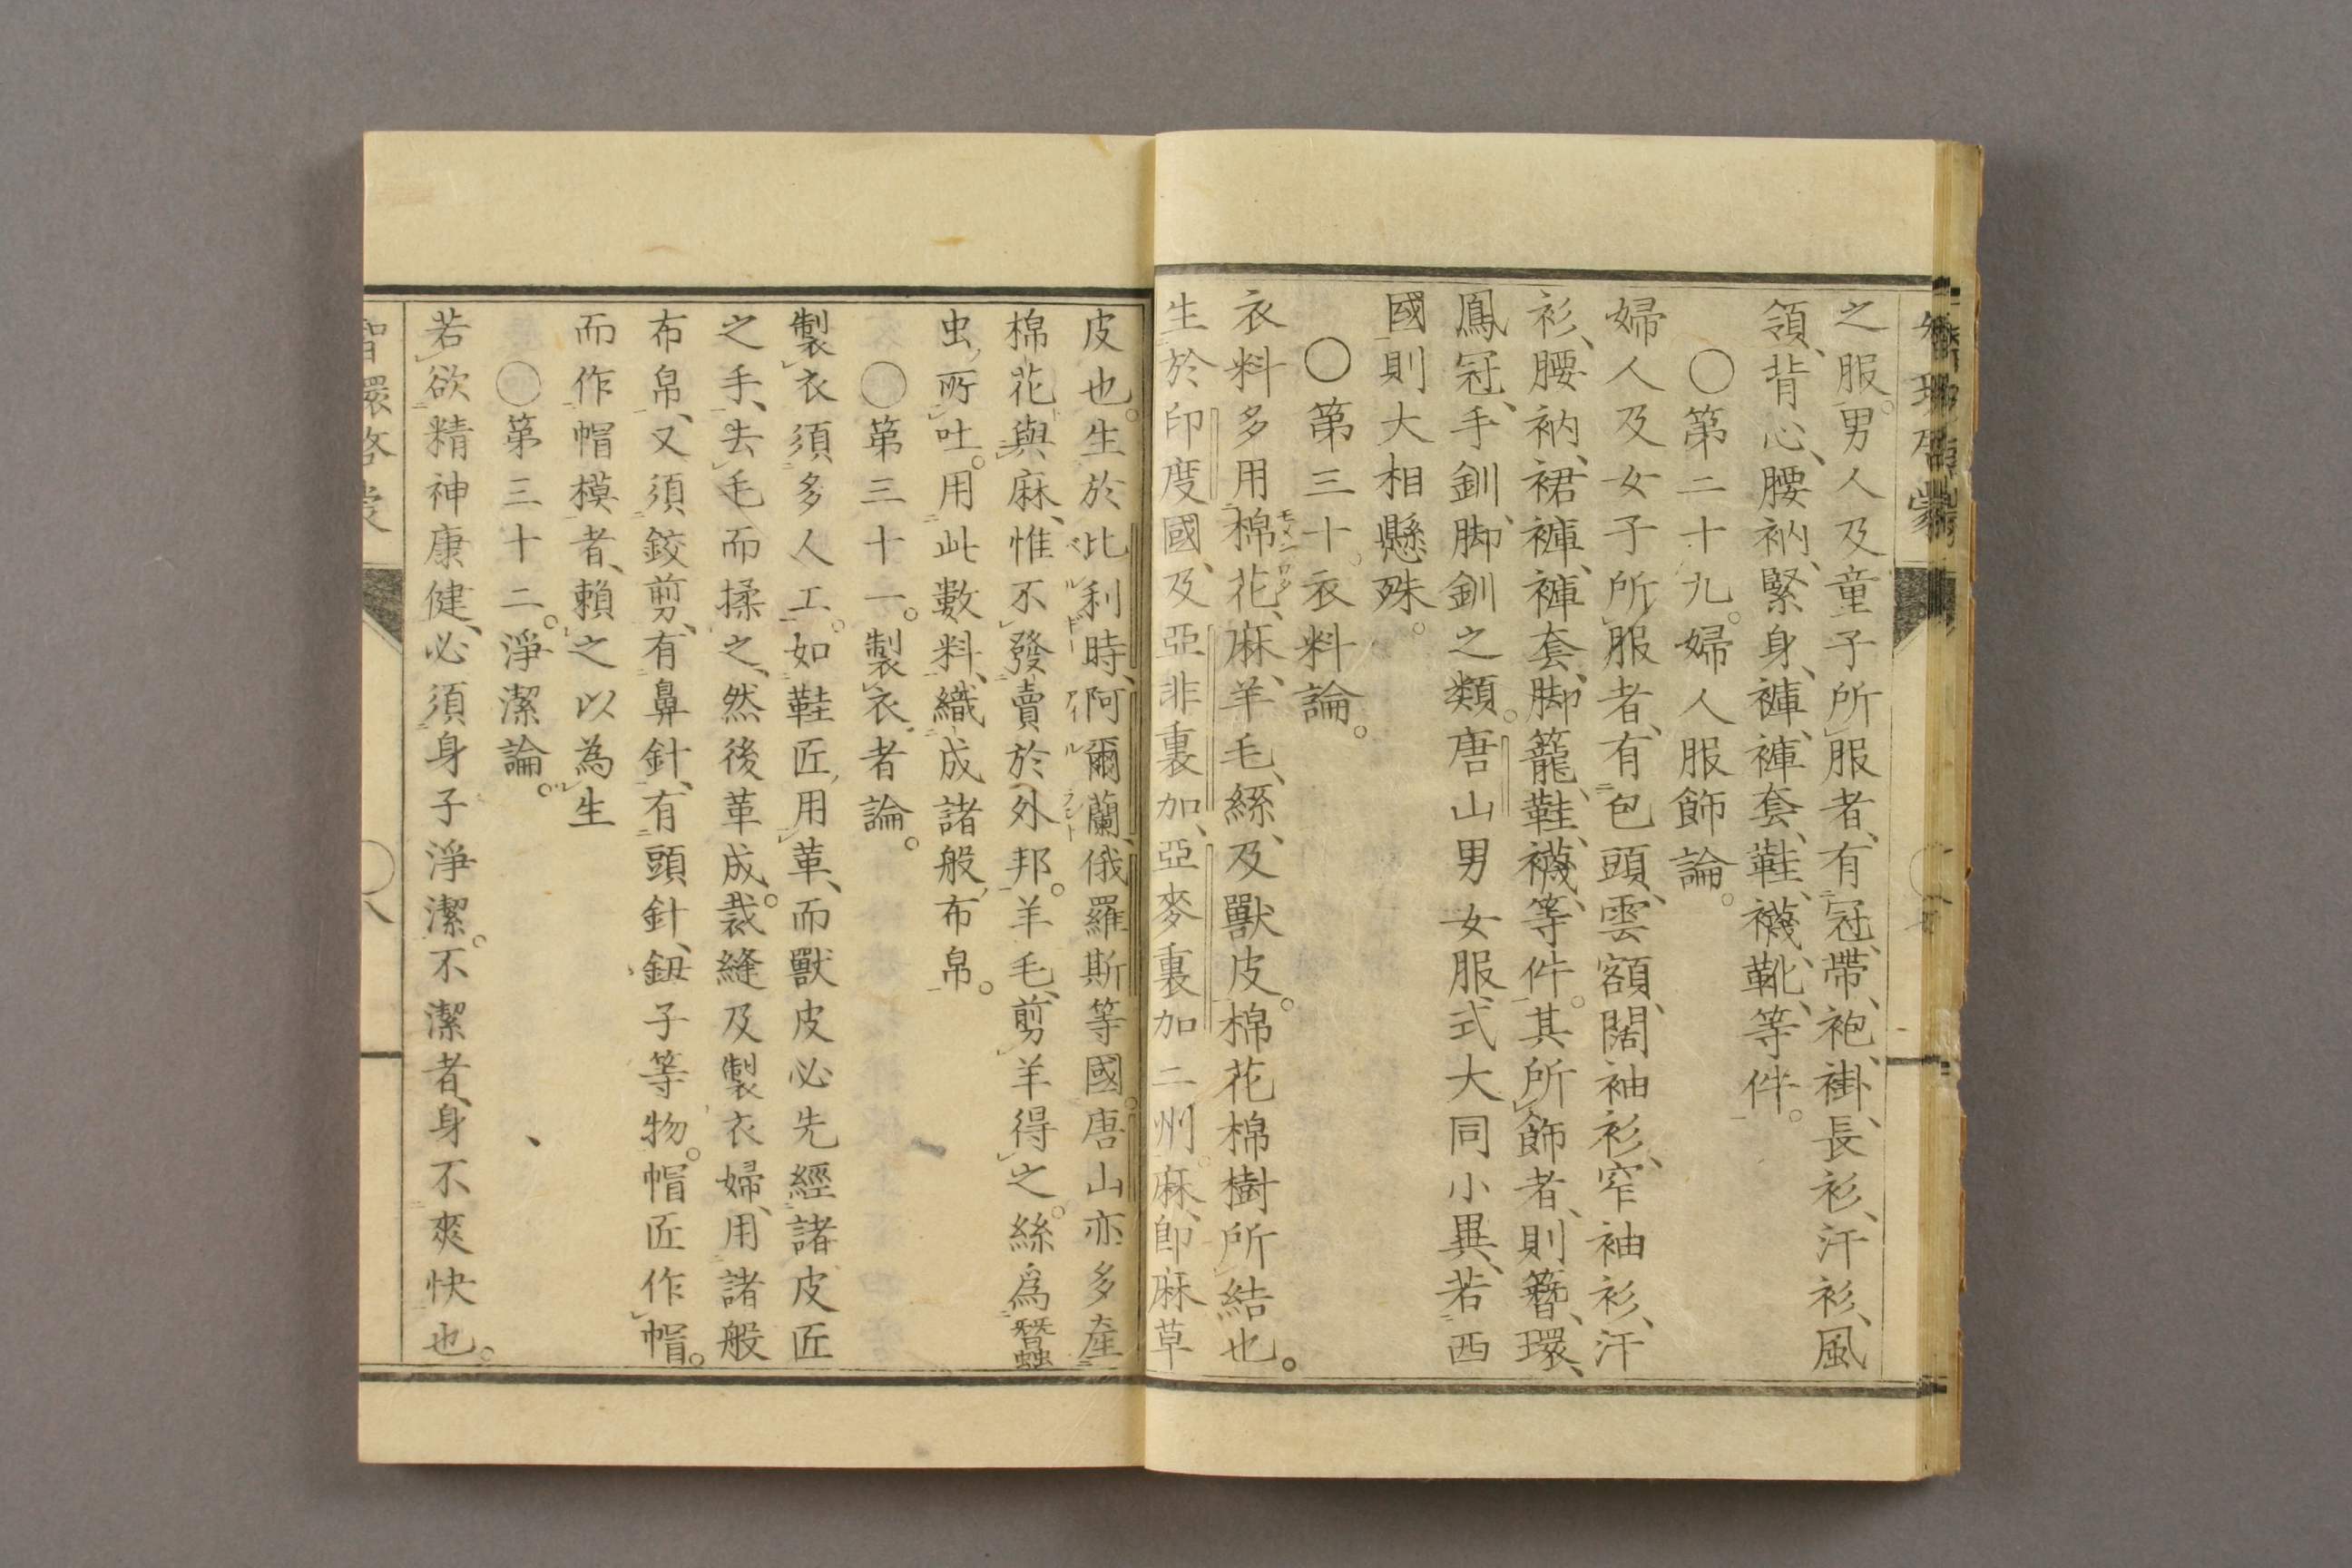 智環啓蒙
之服。男人及童子所服者、有冠、帶、袍、褂、長衫、汗衫、風
領、背心、腰衲、緊身、褲、褲套、鞋、襪、靴、等件。
〇第二十九。婦人服飾論。
婦人及女子所服者、有包頭、雲額、闊袖衫、窄袖衫、汗
衫、腰衲、裙褲、褲套、脚籠、鞋、襪、等件。其所飾者、則簪、環、
鳳冠、手釧、脚釧之類。唐山男女服式大同小異、若西
國則大相懸殊。
〇第三十。衣料論。
衣料多用棉花、麻、羊毛、絲、及獸皮。棉花棉樹所結也。
生於印度國、及亞非裏加、亞麥裏加二州。麻、卽麻草
皮也。生於比利時、阿爾蘭、俄羅斯等國。唐山亦多產
ベルギー アイルラント
棉花與麻、惟不發賣於外邦。羊毛、剪羊得之。絲爲蠶
虫所吐。用此數料、織成諸般布帛。
〇第三十一。製衣者論。
製衣須多人工。如鞋匠用革、而獸皮必先經諸皮匠
之手、去毛而揉之、然後革成。裁縫及製衣婦、用諸般
布帛、又須鉸剪、有鼻針、有頭針、鈕子等物。帽匠作帽。
而作帽模者、賴之以為生
〇第三十二。淨潔論。
若欲精神康健、必須身子淨潔。不潔者、身不爽快也。
智環啓蒙
〇八